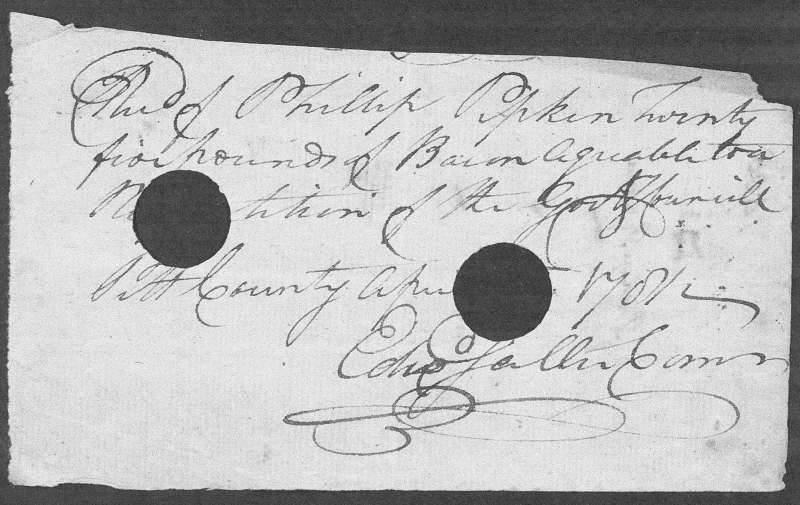 Recd of Phillip Pipkin Twenty
five pounds of Bacon agreable to a
tition of the Govr & Councill
Pitt County Apr 1781
Edwd Salter Comr